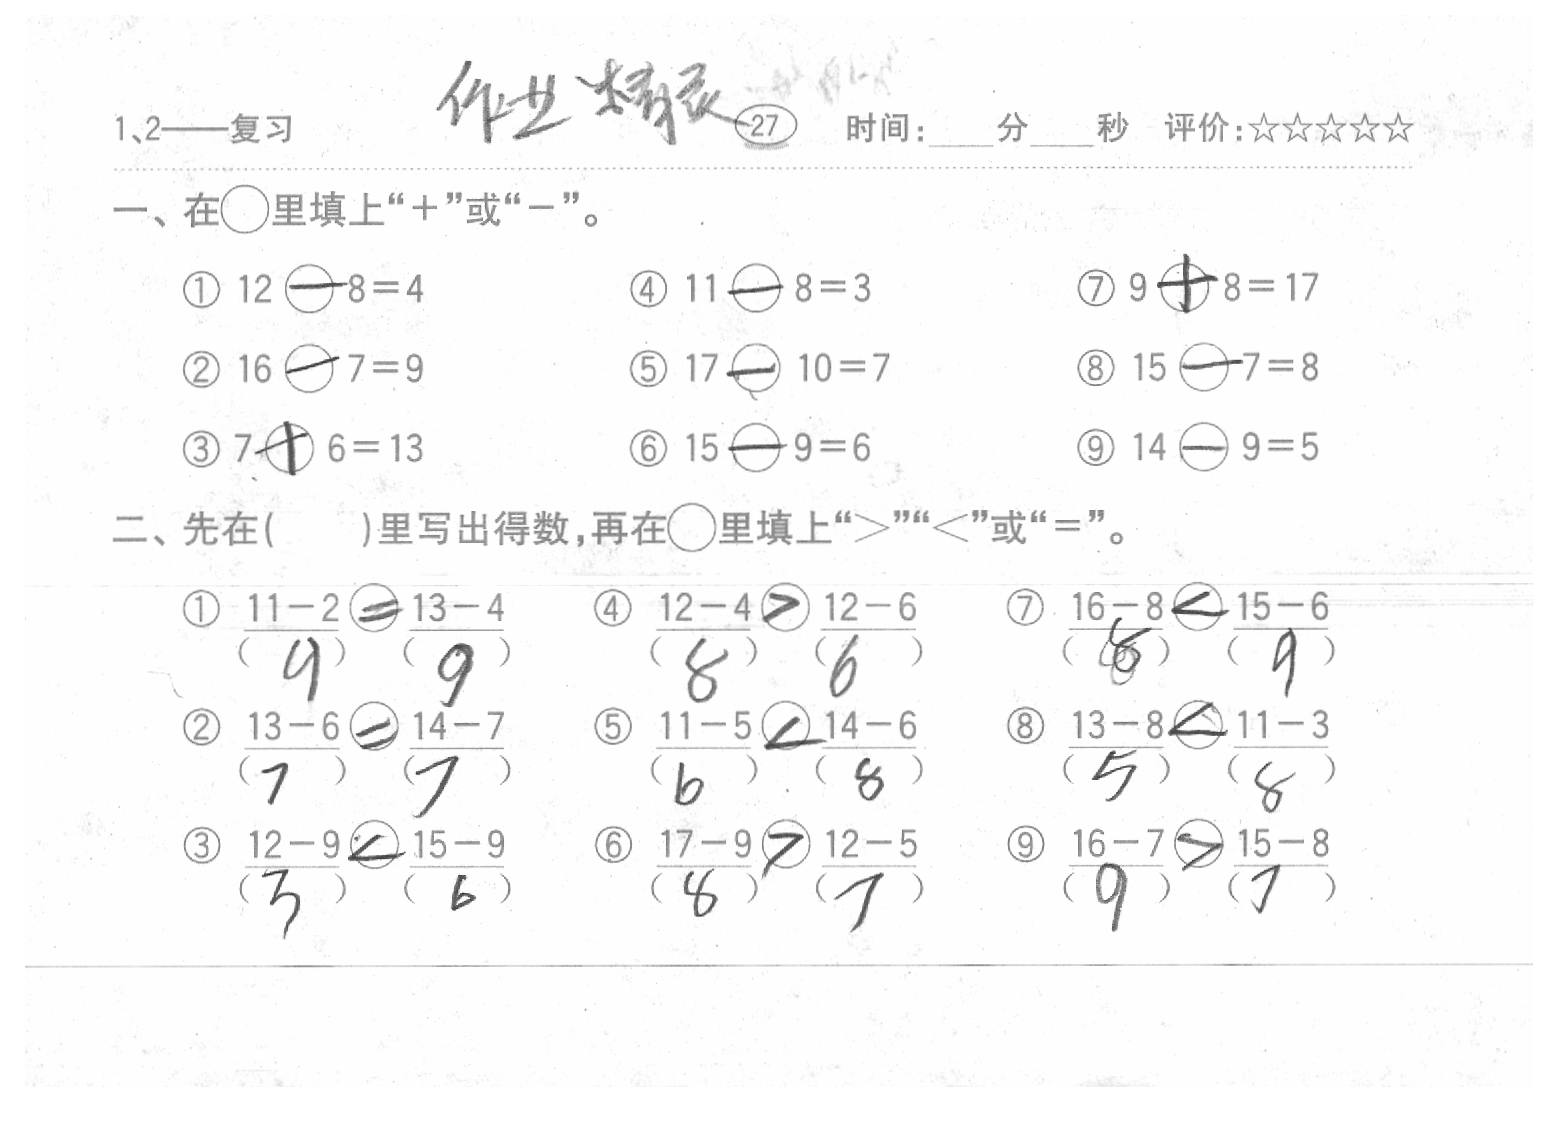 作业精灵
1、2——复习 27 时间:____分____秒 评价:☆☆☆☆☆
一、在○里填上“+”或“-”。
① 12 - 8=4 ④ 11 - 8=3 ⑦ 9 + 8=17
② 16 - 7=9 ⑤ 17 - 10=7 ⑧ 15 - 7=8
③ 7 + 6=13 ⑥ 15 - 9=6 ⑨ 14 - 9=5
二、先在( )里写出得数,再在○里填上“>”“<”或“=”。
① 11-2 = 13-4 ④ 12-4 > 12-6 ⑦ 16-8 < 15-6
(9) (9) (8) (6) (8) (9)
② 13-6 = 14-7 ⑤ 11-5 < 14-6 ⑧ 13-8 < 11-3
(7) (7) (6) (8) (5) (8)
③ 12-9 < 15-9 ⑥ 17-9 > 12-5 ⑨ 16-7 > 15-8
(3) (6) (8) (7) (9) (7)